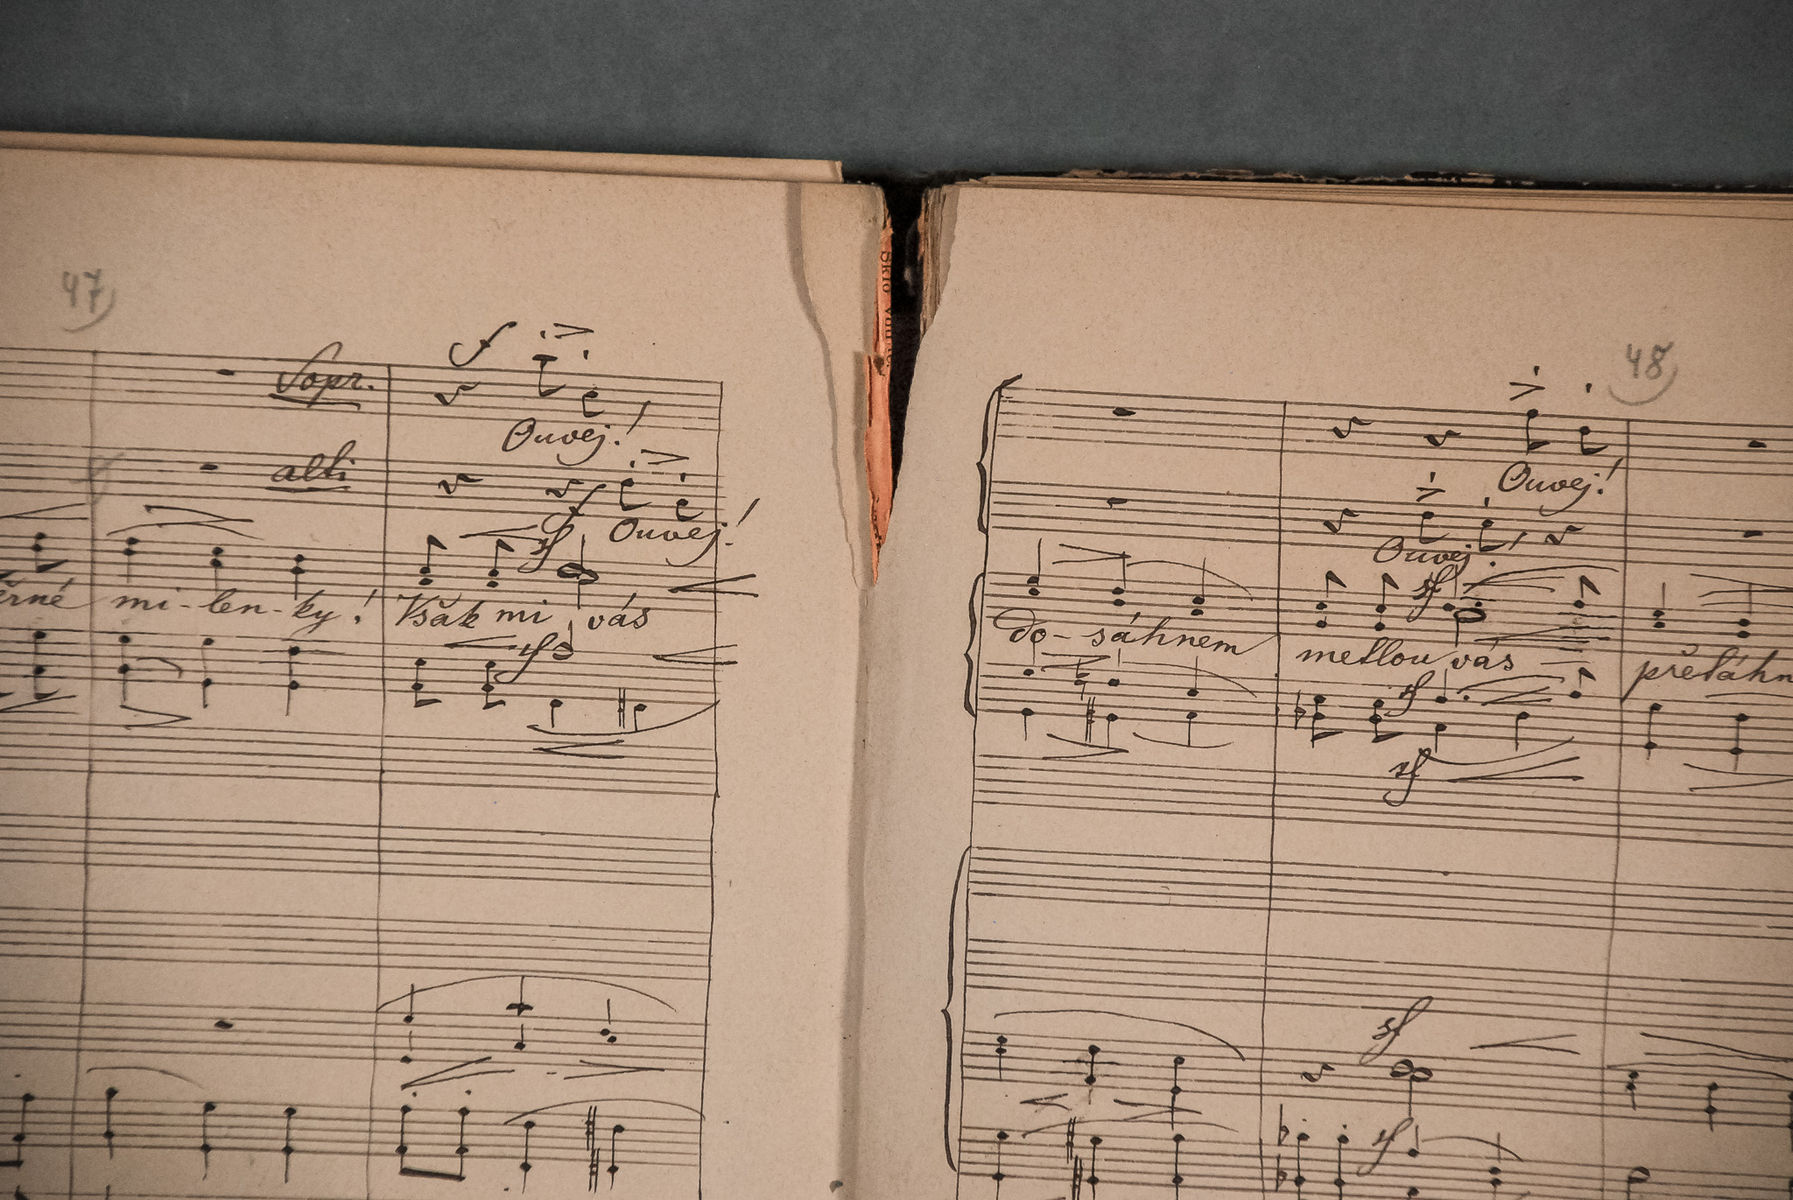 47
Sopr.
f
Ouvej!
alti
f
Ouvej!
mi-len-ky! Však mi vás
sf
sf
48
Ouvej!
Ouvej!
sf
do-sáhnem metlou vás přetáhn
sf
sf
sf
sf